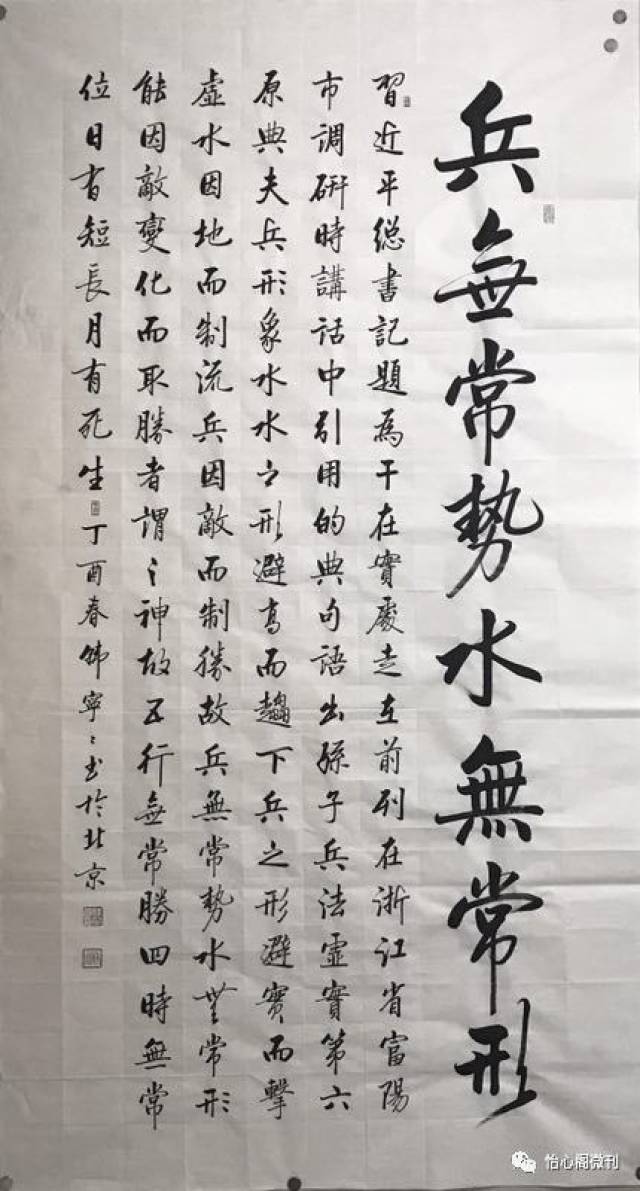 兵無常勢水無常形
習近平總書記題為干在實處走在前列在浙江省富陽
市調研時講話中引用的典句語出孫子兵法虛實第六
原典夫兵形象水水之形避高而趨下兵之形避實而擊
虛水因地而制流兵因敵而制勝故兵無常勢水無常形
能因敵變化而取勝者謂之神故五行無常勝四時無常
位日有短長月有死生丁酉春韩寧寧书於北京
怡心阁微刊